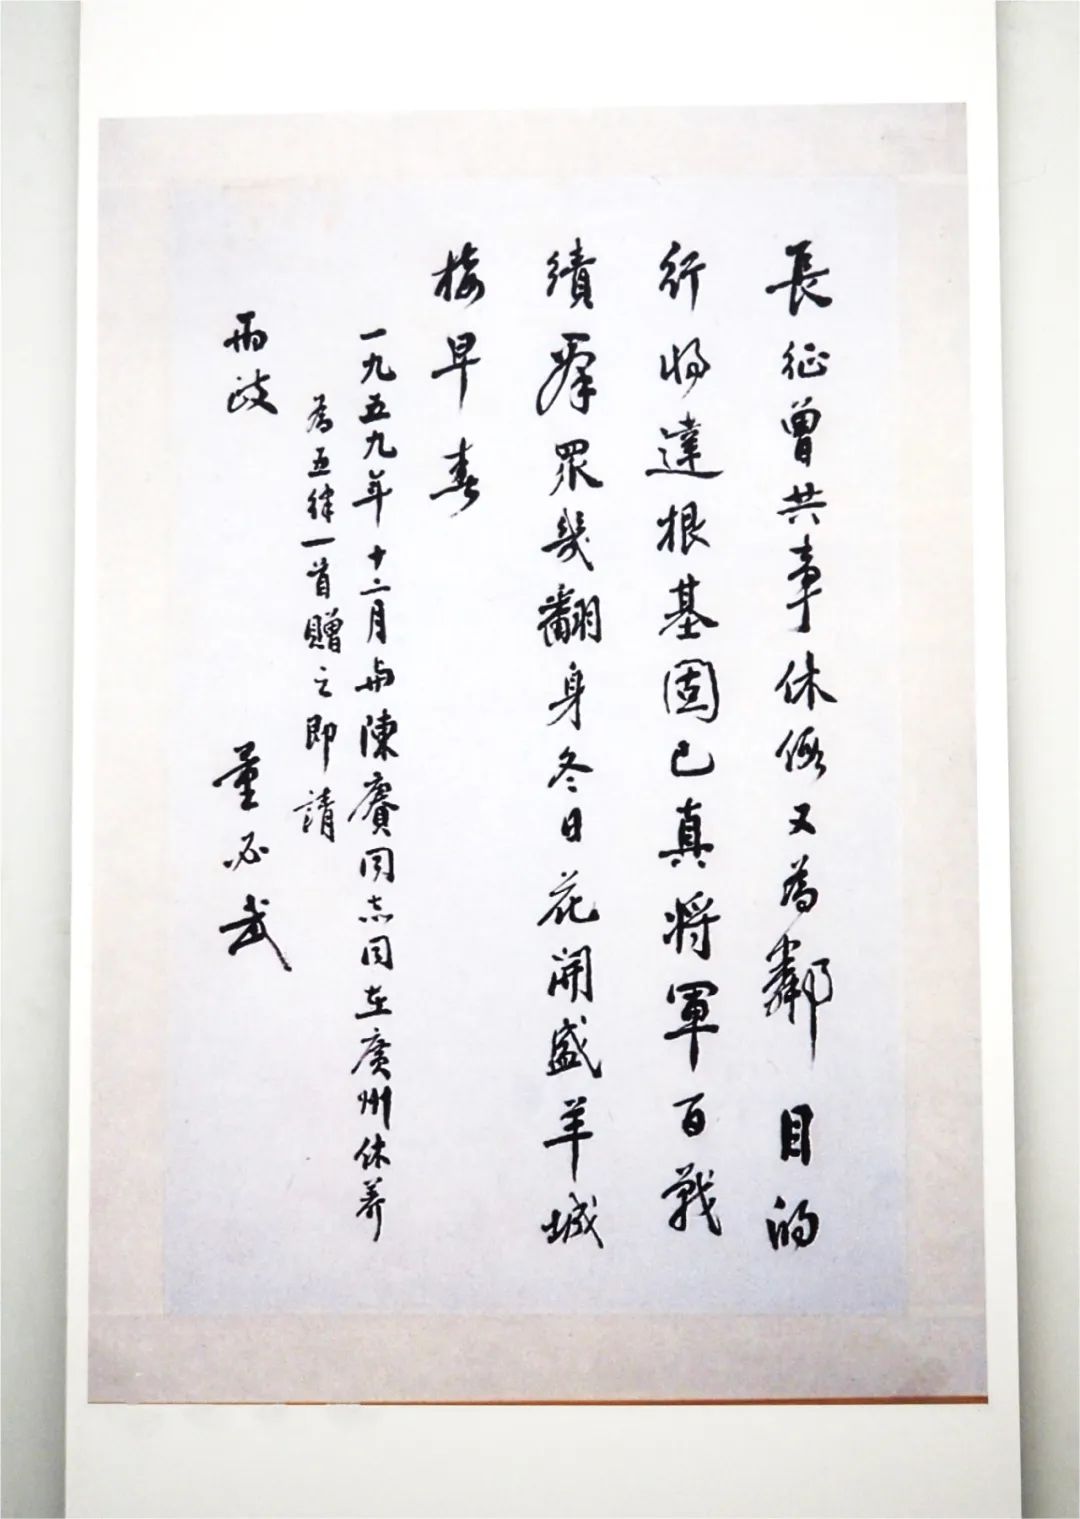 長征曾共事休假又為鄰目的
行將達根基固已真將軍百戰
績群眾幾翻身冬日花開盛羊城
梅早春
一九五九年十二月與陳賡同志同在廣州休养
為五律一首贈之即請
兩政
董必武